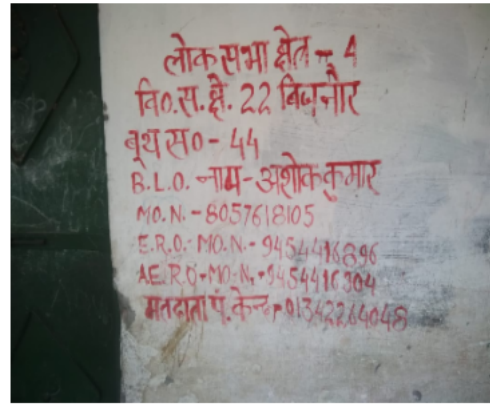 लोक सभा क्षेत्र - 4
वि०.स.क्षे. 22 बिजनौर
बूथ स० - 44
B.L.O. नाम - अशोक कुमार
MO.N. - 8057618105
E.R.O. - MO.N. - 9454416896
A.E.R.O - MO-N. - 9454416304
मतदाता पं. केन्द्र - 01342264048